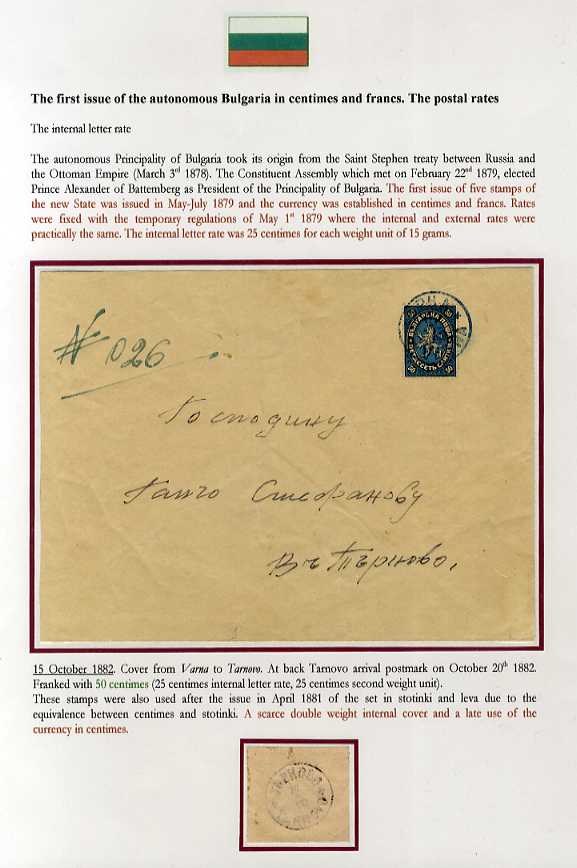 The first issue of the autonomous Bulgaria in centimes and francs. The postal rates
The internal letter rate
The autonomous Principality of Bulgaria took its origin from the Saint Stephen treaty between Russia and
the Ottoman Empire (March 3rd 1878). The Constituent Assembly which met on February 22nd 1879, elected
Prince Alexander of Battemberg as President of the Principality of Bulgaria. The first issue of five stamps of
the new State was issued in May-July 1879 and the currency was established in centimes and francs. Rates
were fixed with the temporary regulations of May 1st 1879 where the internal and external rates were
practically the same. The internal letter rate was 25 centimes for each weight unit of 15 grams.
N 026
Господину
Ганчо Стефанову
Въ Търново.
15 October 1882. Cover from Varna to Tarnovo. At back Tarnovo arrival postmark on October 20th 1882.
Franked with 50 centimes (25 centimes internal letter rate, 25 centimes second weight unit).
These stamps were also used after the issue in April 1881 of the set in stotinki and leva due to the
equivalence between centimes and stotinki. A scarce double weight internal cover and a late use of the
currency in centimes.